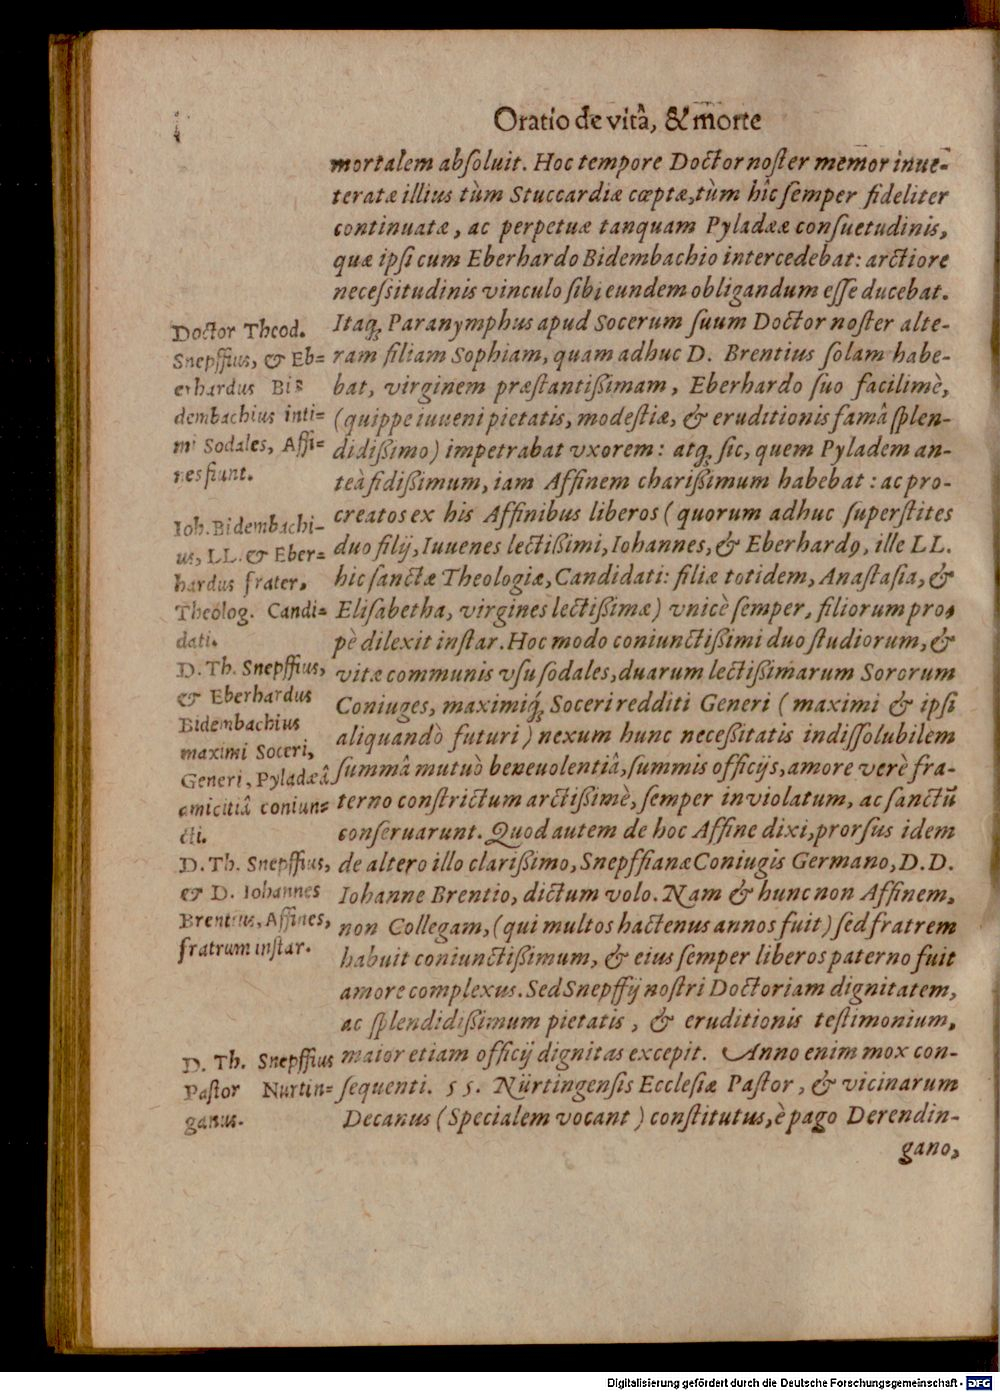 Oratio de vitâ, & morte
mortalem absoluit. Hoc tempore Doctor noster memor inue-
teratæ illius tùm Stuccardiæ cœptæ, tùm hîc semper fideliter
continuatæ, ac perpetuæ tanquam Pyladææ consuetudinis,
quæ ipsi cum Eberhardo Bidembachio intercedebat: arctiore
necessitudinis vinculo sibi eundem obligandum esse ducebat.
Itaq; Paranymphus apud Socerum suum Doctor noster alte-
ram filiam Sophiam, quam adhuc D. Brentius solam habe-
bat, virginem præstantißimam, Eberhardo suo facilimè,
(quippe iuueni pietatis, modestiæ, & eruditionis famâ splen-
didißimo) impetrabat vxorem: atq; sic, quem Pyladem an-
teà fidißimum, iam Affinem charißimum habebat: ac pro-
creatos ex his Affinibus liberos (quorum adhuc superstites
duo filij, Iuuenes lectißimi, Iohannes, & Eberhardꝰ, ille LL.
hic sanctæ Theologiæ, Candidati: filiæ totidem, Anastasia, &
Elisabetha, virgines lectißimæ) vnicè semper, filiorum pro-
pè dilexit instar. Hoc modo coniunctißimi duo studiorum, &
vitæ communis vsu sodales, duarum lectißimarum Sororum
Coniuges, maximiq́; Soceri redditi Generi (maximi & ipsi
aliquandò futuri) nexum hunc neceßitatis indissolubilem
summâ mutuò beneuolentiâ, summis officijs, amore verè fra-
terno constrictum arctißimè, semper inviolatum, ac sanctũ
conseruarunt. Quod autem de hoc Affine dixi, prorsus idem
de altero illo clarißimo, Snepffianæ Coniugis Germano, D.D.
Iohanne Brentio, dictum volo. Nam & hunc non Affinem,
non Collegam, (qui multos hactenus annos fuit) sed fratrem
habuit coniunctißimum, & eius semper liberos paterno fuit
amore complexus. Sed Snepffij nostri Doctoriam dignitatem,
ac splendidißimum pietatis, & eruditionis testimonium,
maior etiam officij dignitas excepit. Anno enim mox con-
sequenti. 55. Nürtingensis Ecclesiæ Pastor, & vicinarum
Decanus (Specialem vocant) constitutus, è pago Derendin-
gano,
Doctor Theod.
Snepffius, & Eb=
erhardus Bi=
dembachius inti=
mi Sodales, Affi=
nes fiunt.
Ioh. Bidembachi-
us, LL. & Eber=
hardus frater,
Theolog. Candi=
dati.
D. Th. Snepffius,
& Eberhardus
Bidembachius
maximi Soceri,
Generi, Pyladæâ
amicitiâ coniun=
cti.
D. Th. Snepffius,
& D. Iohannes
Brentius, Affines,
fratrum instar.
D. Th. Snepffius
Pastor Nurtin=
ganus.
Digitalisierung gefördert durch die Deutsche Forschungsgemeinschaft - DFG